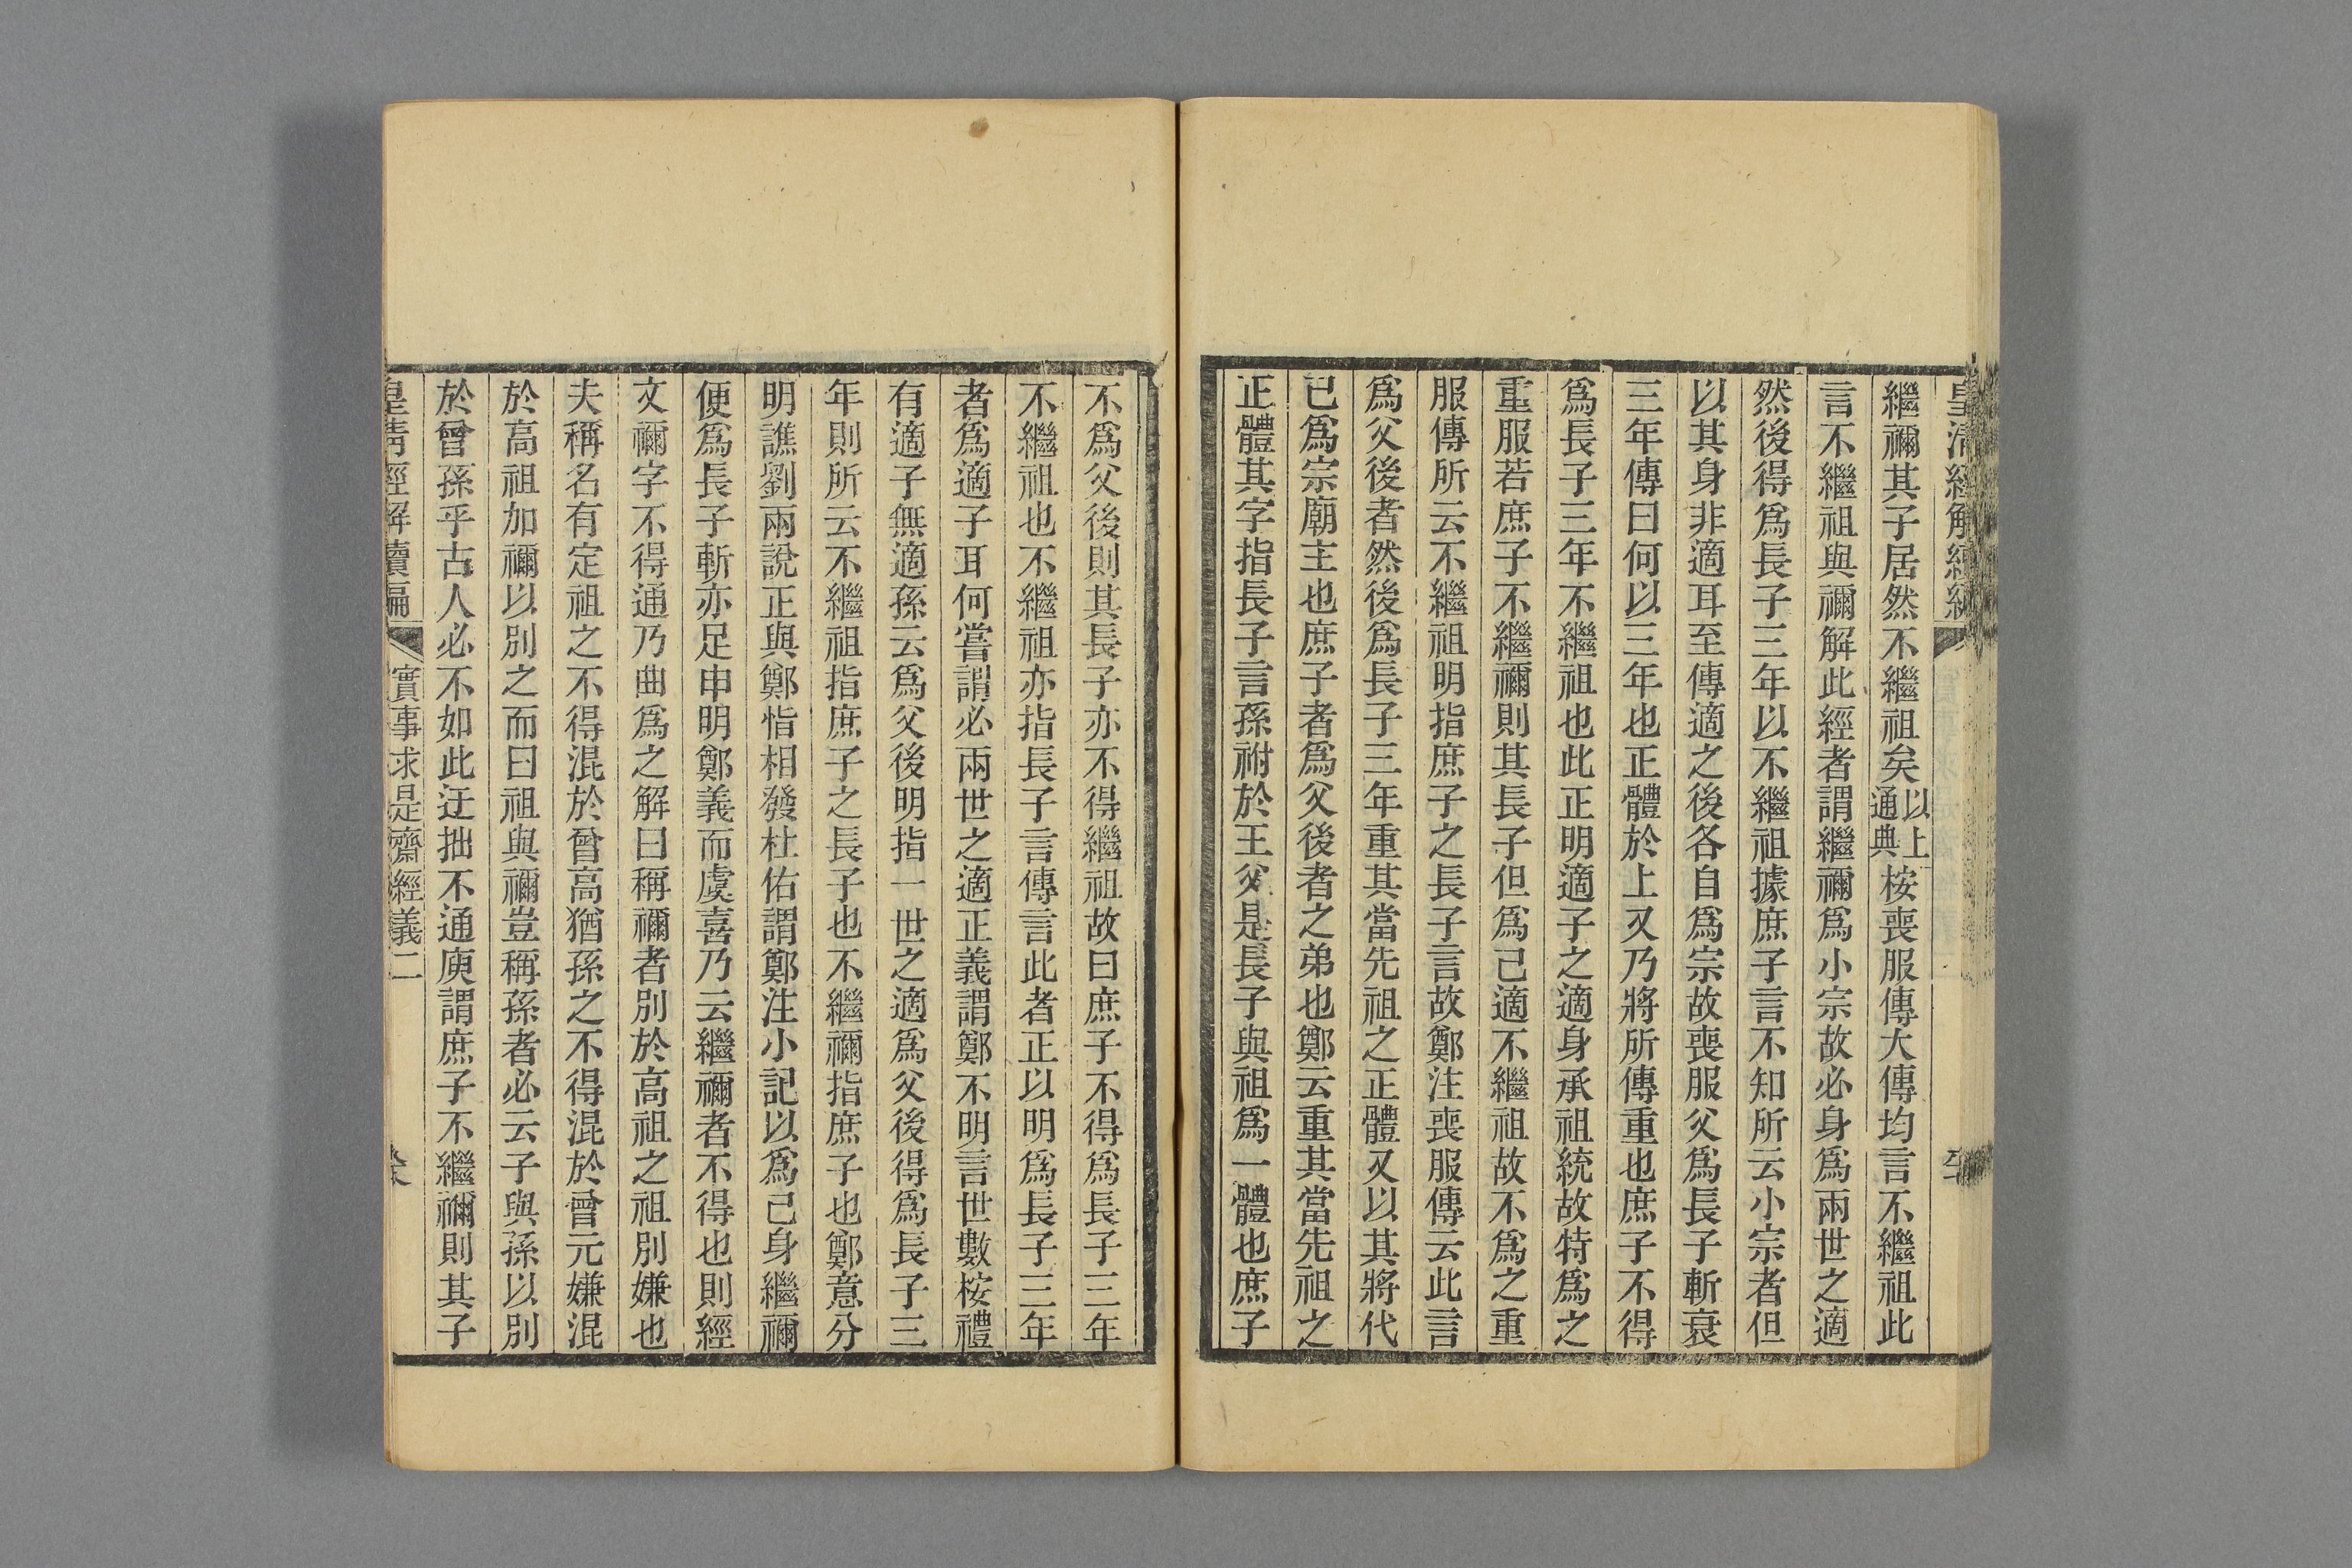 皇清經解續編
繼禰其子居然不繼祖矣以上通典桉喪服傳大傳均言不繼祖此
言不繼祖與禰解此經者謂繼禰爲小宗故必身爲兩世之適
然後得爲長子三年以不繼祖據庶子言不知所云小宗者但
以其身非適耳至傳適之後各自爲宗故喪服父爲長子斬衰
三年傳曰何以三年也正體於上又乃將所傳重也庶子不得
爲長子三年不繼祖也此正明適子之適身承祖統故特爲之
重服若庶子不繼禰則其長子但爲己適不繼祖故不爲之重
服傳所云不繼祖明指庶子之長子言故鄭注喪服傳云此言
爲父後者然後爲長子三年重其當先祖之正體又以其將代
已爲宗廟主也庶子者爲父後者之弟也鄭云重其當先祖之
正體其字指長子言孫祔於王父是長子與祖爲一體也庶子
不爲父後則其長子亦不得繼祖故曰庶子不得爲長子三年
不繼祖也不繼祖亦指長子言傳言此者正以明爲長子三年
者爲適子耳何嘗謂必兩世之適正義謂鄭不明言世數桉禮
有適子無適孫云爲父後明指一世之適爲父後得爲長子三
年則所云不繼祖指庶子之長子也不繼禰指庶子也鄭意分
明譙劉兩說正與鄭恉相發杜佑謂鄭注小記以爲己身繼禰
便爲長子斬亦足申明鄭義而虞喜乃云繼禰者不得也則經
文禰字不得通乃曲爲之解曰稱禰者別於高祖之祖別嫌也
夫稱名有定祖之不得混於曾高猶孫之不得混於曾元嫌混
於高祖加禰以別之而曰祖與禰豈稱孫者必云子與孫以別
於曾孫乎古人必不如此迂拙不通庾謂庶子不繼禰則其子
皇清經解續編 實事求是齋經義二